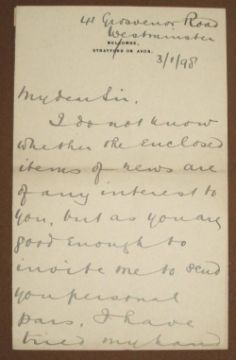 41 Grosvenor Road
Westminster
WELCOMBE,
STRATFORD ON AVON.
3/1/98
My dear Sir.
I do not know
whether the enclosed
items of news are
of any interest to
you, but as you are
good enough to
invite me to send
you personal
pars, I have
tried my hand